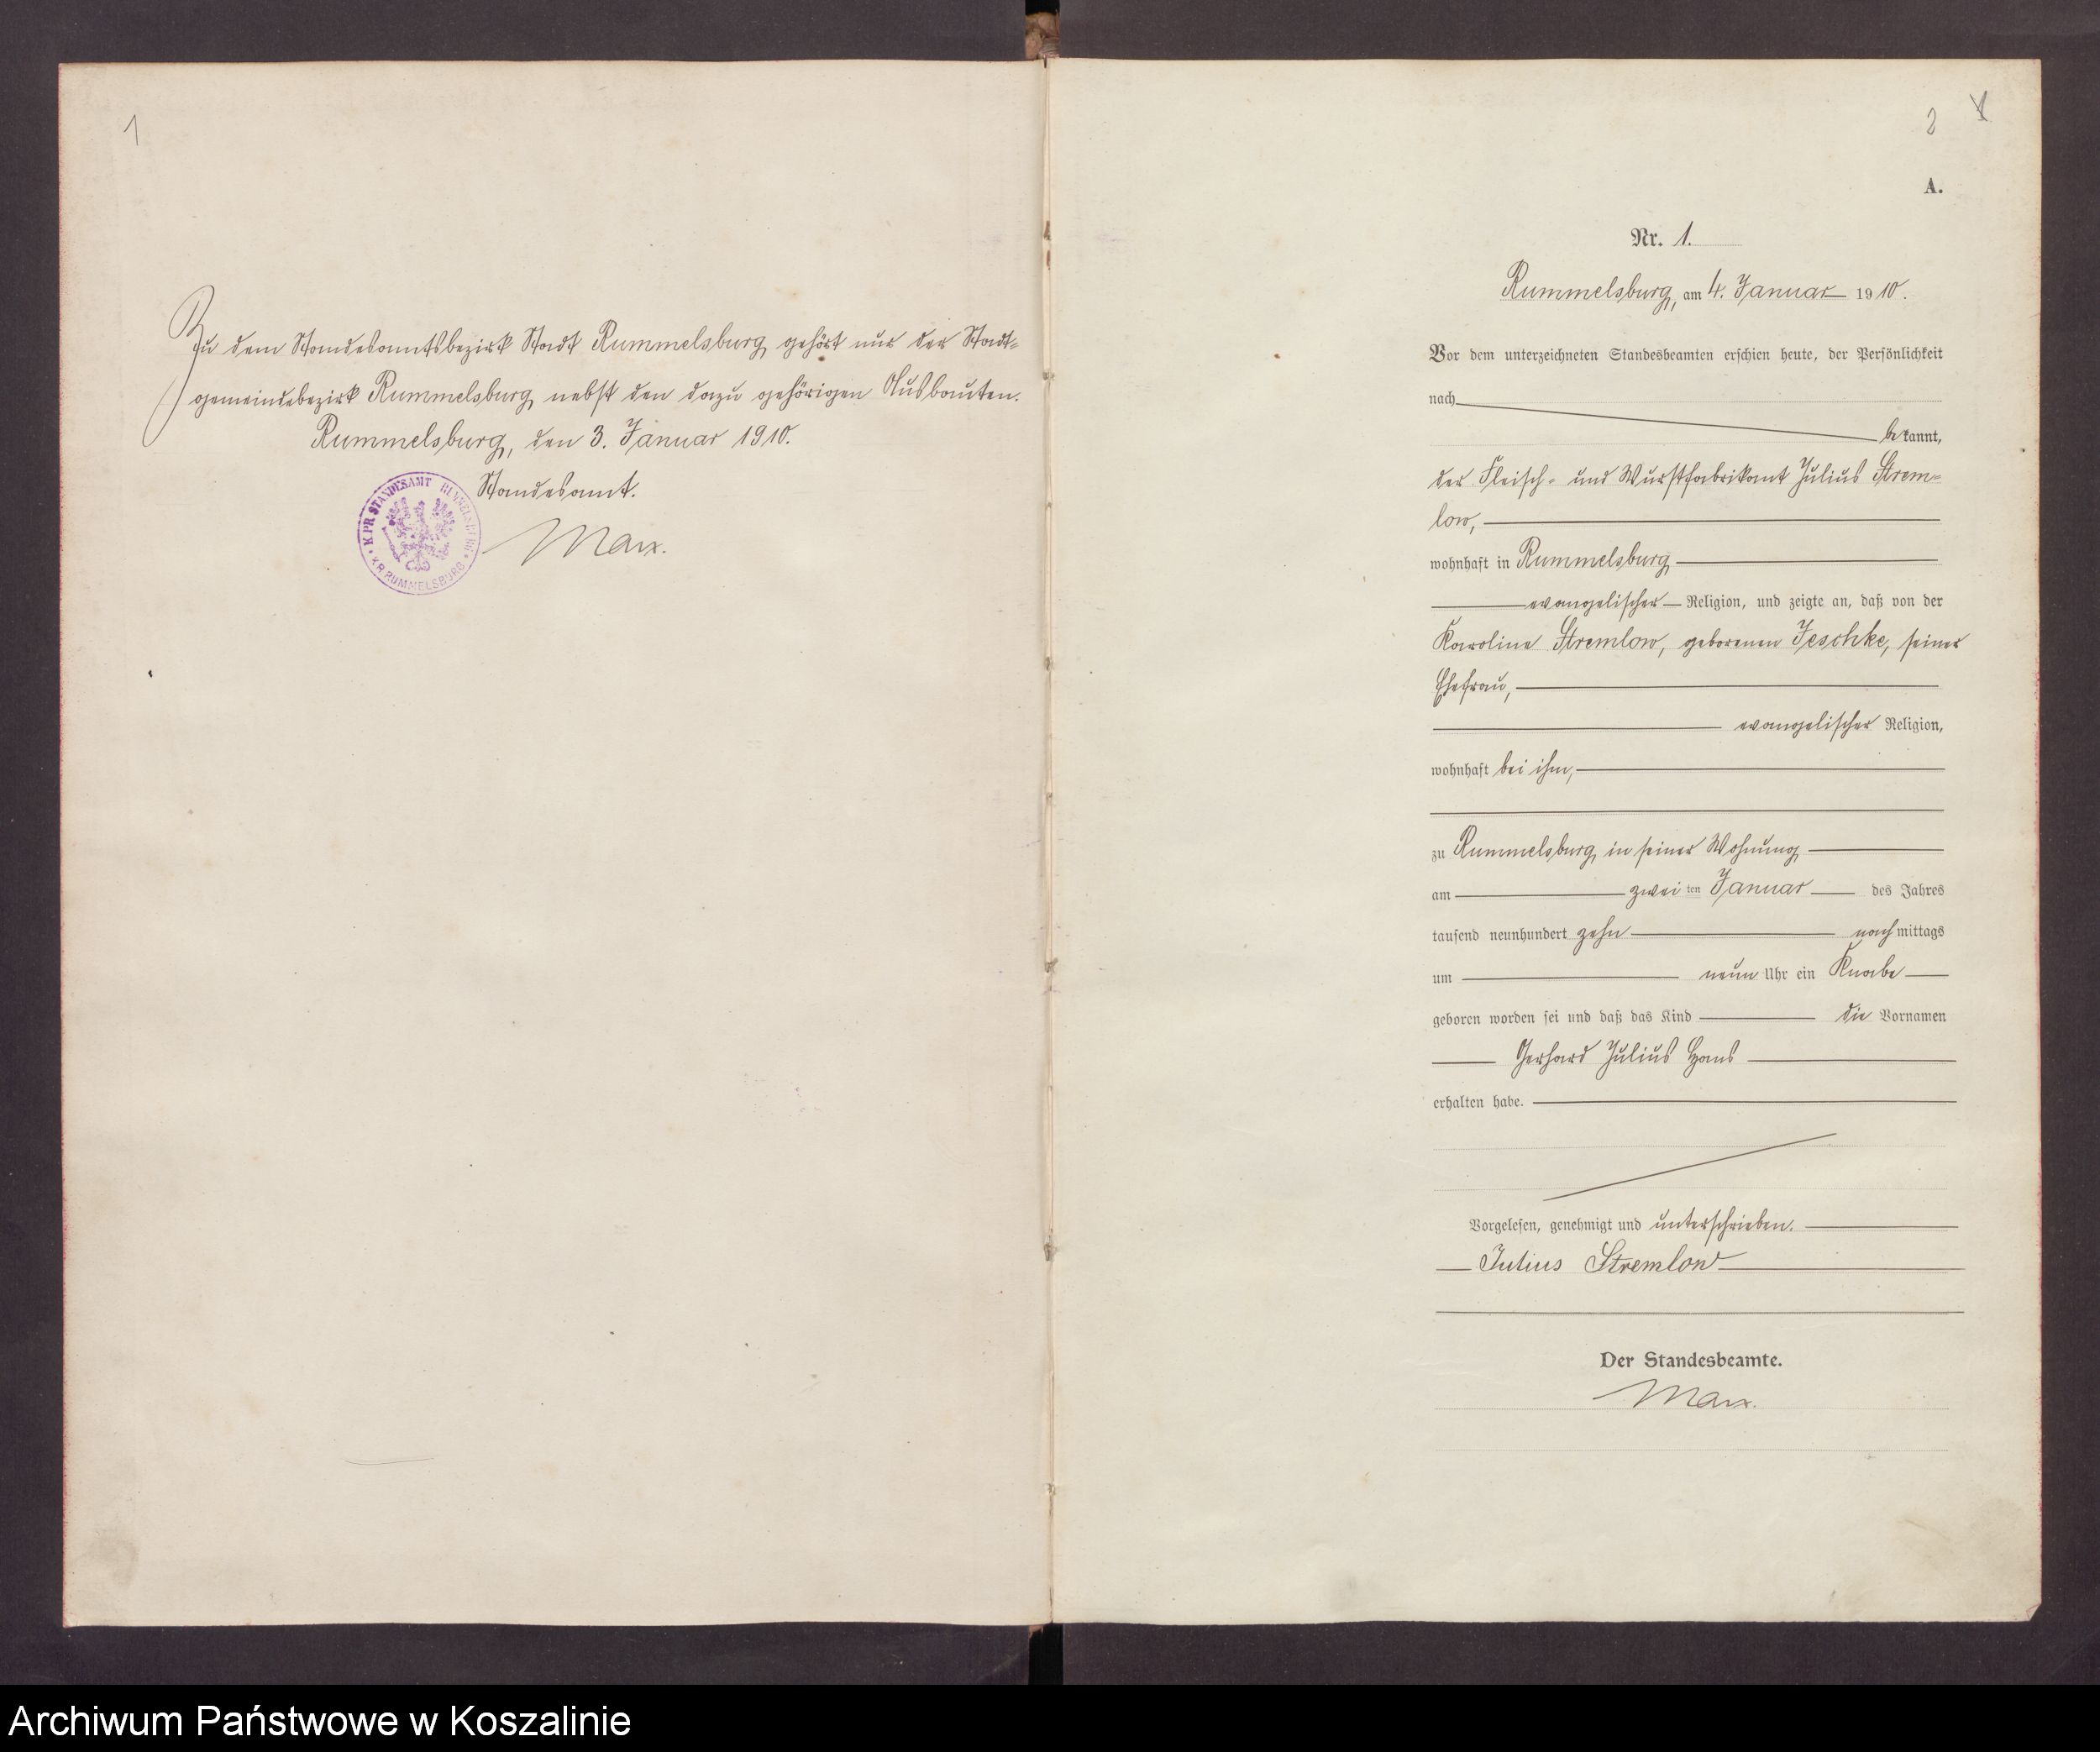 1
Zu dem Standesamtsbezirk Stadt Rummelsburg gehört nur der Stadt-
gemeindebezirk Rummelsburg nebst den dazu gehörigen Ausbauten.
Rummelsburg, den 3. Januar 1910.
Standesamt.
KPR STANDESAMT RUMMELSBURG
KR RUMMELSBURG
Marx.
2
A.
Nr. 1.
Rummelsburg, am 4. Januar 1910.
Vor dem unterzeichneten Standesbeamten erschien heute, der Persönlichkeit
nach
bekannt,
der Fleisch- und Wurstfabrikant Julius Strem-
low,
wohnhaft in Rummelsburg
evangelischer Religion, und zeigte an, daß von der
Karoline Stremlow, geborenen Jeschke, seiner
Ehefrau,
evangelischer Religion,
wohnhaft bei ihm,
zu Rummelsburg in seiner Wohnung
am zwei ten Januar des Jahres
tausend neunhundert zehn nachmittags
um neun Uhr ein Knabe
geboren worden sei und daß das Kind die Vornamen
Gerhard Julius Hans
erhalten habe.
Vorgelesen, genehmigt und unterschrieben.
Julius Stremlow
Der Standesbeamte.
Marx.
Archiwum Państwowe w Koszalinie